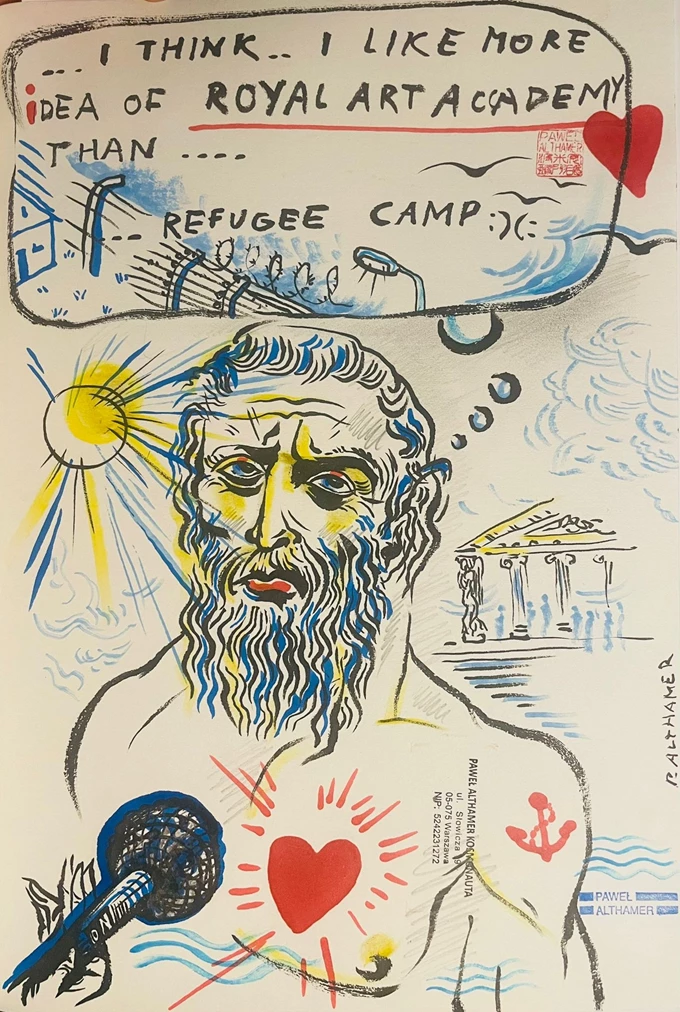 ... I THINK.. I LIKE MORE
iDEA OF ROYAL ART ACADEMY
THAN ....
... REFUGEE CAMP :)(:
PAWEŁ
ALTHAMER
P. ALTHAMER
PAWEŁ ALTHAMER KOSMONAUTA
ul. Słowicza
05-075 Warszawa
NIP: 5242231272
PAWEŁ
ALTHAMER